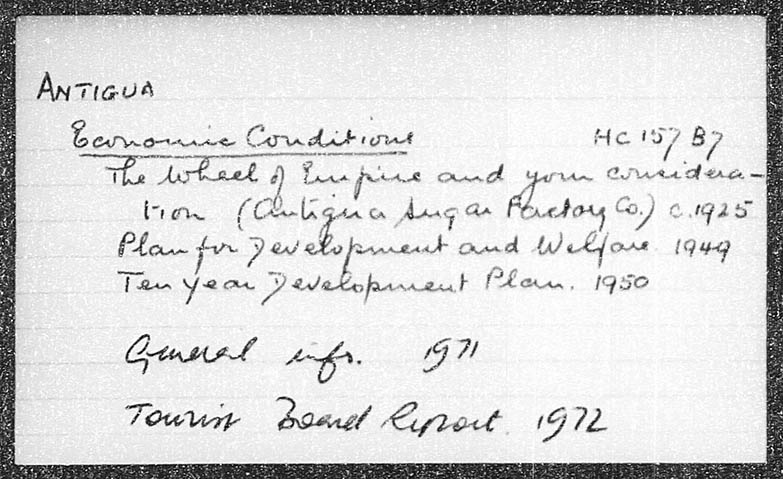 ANTIGUA
Economic Conditions HC 157 B7
The Wheel of Empire and your considera-
tion (Antigua Sugar Factory Co.) c.1925
Plan for Development and Welfare. 1949
Ten year Development Plan. 1950
General info. 1971
Tourist Board Report. 1972